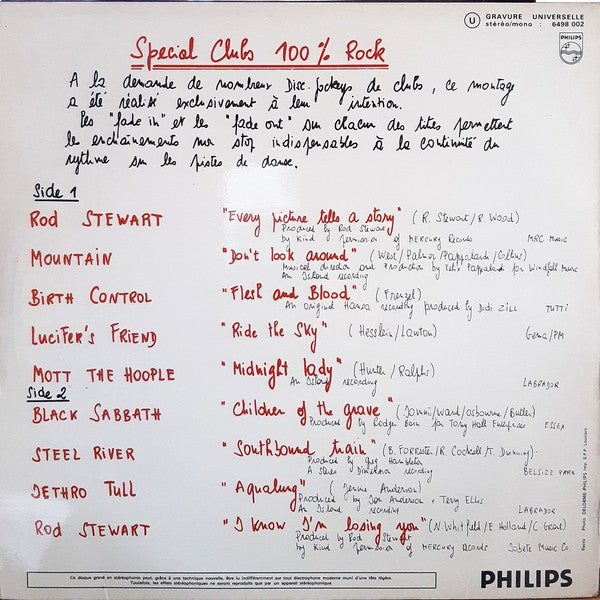 U GRAVURE UNIVERSELLE
stéréo/mono : 6498 002
PHILIPS
Special Clubs 100 % Rock
A la demande de nombreux Disc. Jockeys de clubs, ce montage
a été réalisé exclusivement à leur intention.
Des "fade in" et les "fade out" sur chacun des titres permettent
les enchaînements non stop indispensables à la continuité du
rythme sur les pistes de danse.
Side 1
ROD STEWART "Every picture tells a story" (R. Stewart/R. Wood)
Produced by Rod Stewart
by Kind permission of MERCURY Records MRC Music
MOUNTAIN "Don't look around" (West/Palmer/Pappalardi/Collins)
Musical director and Production by Felix Pappalardi for Windfall Music
An Island recording
BIRTH CONTROL "Flesh and Blood" (Frenzel)
An original Hansa recording produced by Didi Zill TUTTI
LUCIFER'S FRIEND "Ride the Sky" (Hesslein/Lawton) Gema/PM
MOTT THE HOOPLE "Midnight lady" (Hunter/Ralphs)
An Island recording LABRADOR
Side 2
BLACK SABBATH "Children of the grave" (Iommi/Ward/Osbourne/Butler)
Produced by Rodger Bain for Tony Hall Enterprises ESSEX
STEEL RIVER "Southbound train" (B. Forrester/R. Cockell/T. Dunning)
Produced by Greg Hambleton
A stereo Dimension recording BELSIZE PARK
JETHRO TULL "Aqualung" (Jennie Anderson)
Produced by Ian Anderson + Terry Ellis
An Island recording LABRADOR
ROD STEWART "I know I'm losing you" (N. Whitfield/E Holland/C. Grant)
Produced by Rod Stewart
by Kind permission of MERCURY Records Jobete Music Co.
Ce disque gravé en stéréophonie peut, grâce à une technique nouvelle, être lu indifféremment sur tout électrophone moderne muni d'une tête légère.
Toutefois, les effets stéréophoniques ne seront reproduits que par un appareil stéréophonique.
PHILIPS